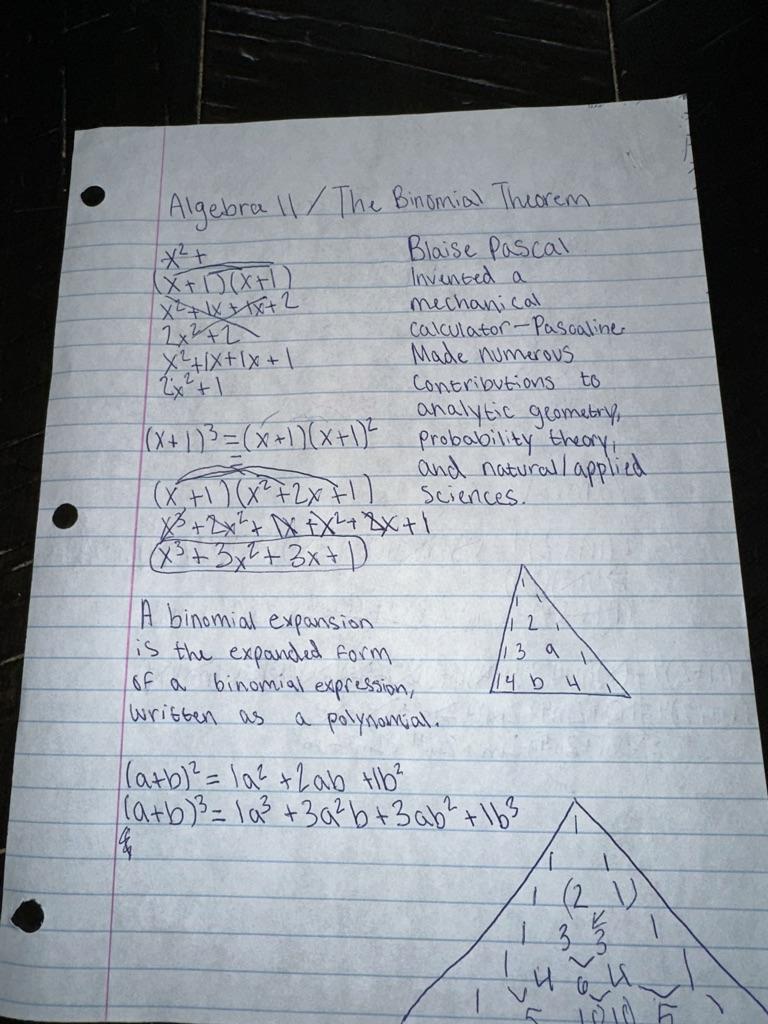 Algebra II / The Binomial Theorem
x² +
(x+1)(x+1)
x²+1x+1x+2
2x²+2
x²+1x+1x+1
2x²+1
(x+1)³=(x+1)(x+1)²
=
(x+1)(x²+2x+1)
x³+2x²+1x+x²+2x+1
x³+3x²+3x+1
Blaise Pascal
Invented a
mechanical
calculator-Pascaline
Made numerous
contributions to
analytic geometry,
probability theory,
and natural/applied
sciences.
A binomial expansion
is the expanded form
of a binomial expression,
written as a polynomial.
1
1 1
1 2 1
1 3 a 1
1 4 b 4 1
(a+b)²=1a²+2ab+1b²
(a+b)³=1a³+3a²b+3ab²+1b³
1
1 1
1 (2 1)
1 3 3 1
1 4 6 4 1
1 5 10 10 5 1